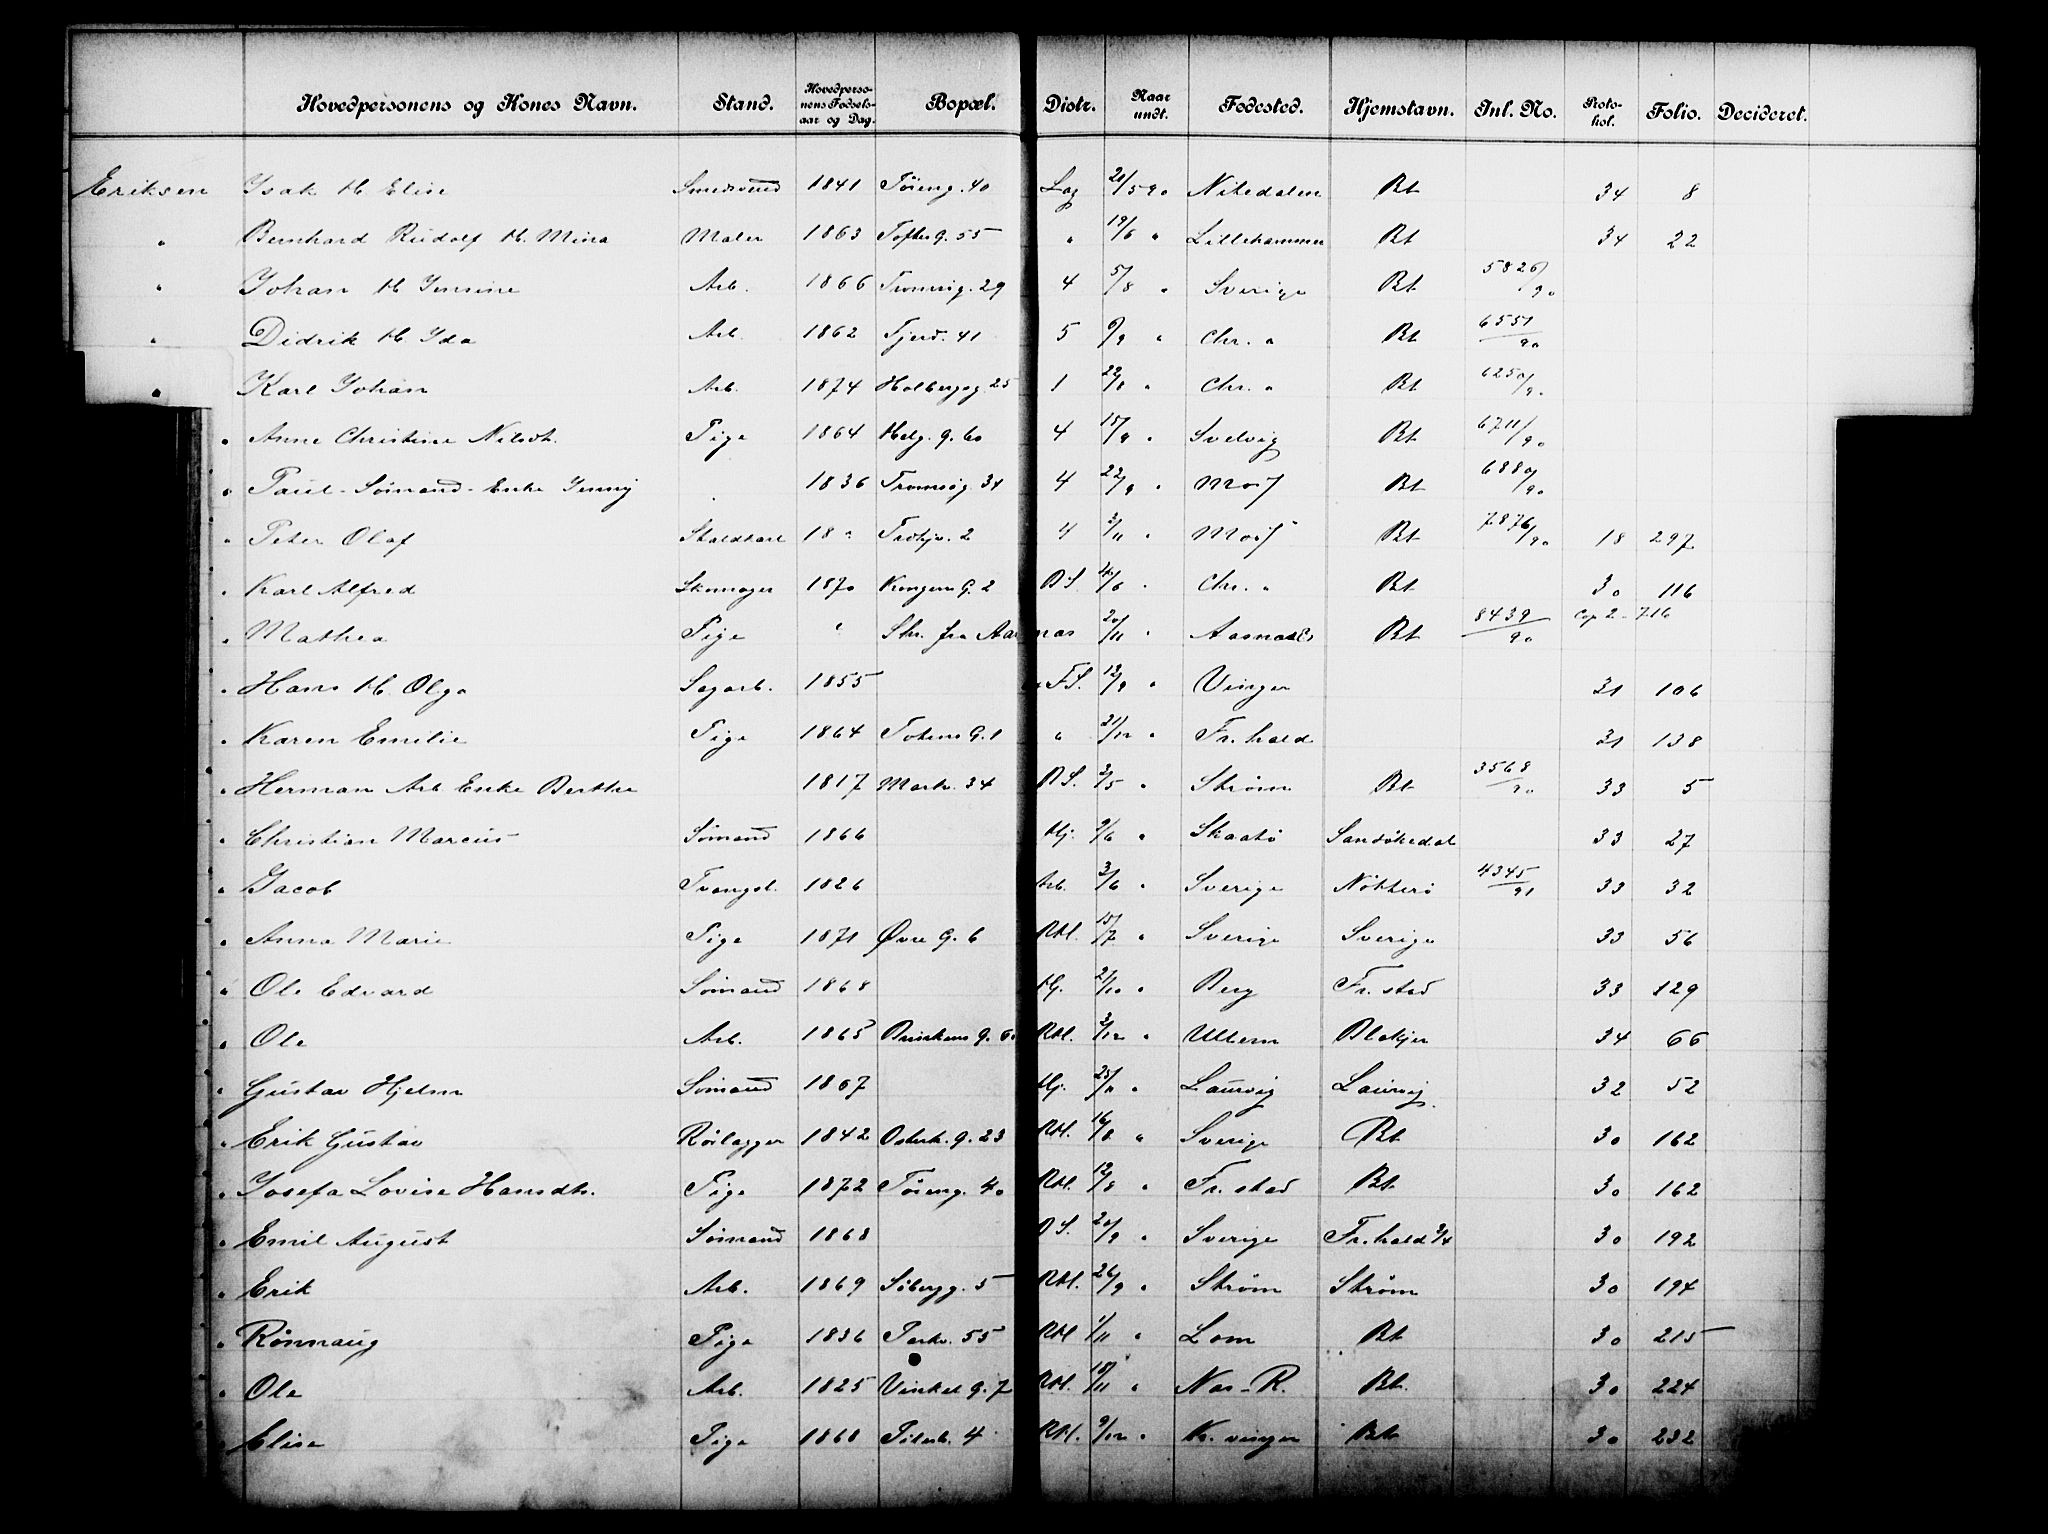 Hovedpersonens og Kones Navn. Stand. Hovedperso-nens Fødsels-aar og Dag. Bopæl. Distr. Naar undt. Fødested. Hjemstavn. Inl. No. Proto-kol. Folio. Decideret.
Eriksen Isak H. Elise Smedsvend 1841 Tøieng. 40 Lag 21/5 90 Nitedalen Bt 34 8
" Bernhard Rudolf H. Mina Maler 1863 Tofteg. 55 " 19/6 " Lillehammer Bt 34 22
" Johan H. Jensine Arb. 1866 Tromsøg. 29 4 5/8 " Sverige Bt 5826/90
" Didrik H. Ida Arb. 1862 Fjerd. 41 5 9/9 " Chr. a Bt 6551/90
" Karl Johan Arb. 1874 Holbergsg. 25 1 29/8 " Chr. a Bt 6250/90
" Anne Christine Nilsdt. Pige 1864 Helg. g. 60 4 15/9 " Svelvig Bt 6711/90
" Paul - Sømand - Enke Jenny 1836 Tromsøg. 34 4 22/9 " Moss Bt 6880/90
" Peter Olaf Staldkarl 18 " Trohjv. 2 4 3/11 " Moss Bt 7876/90 18 297
" Karl Alfred Skomager 1870 Kongens G. 2 BS. /6 " Chr. a Bt 30 116
" Mathea Pige " Skr. fra Aasnas 20/11 " Aasnas Bt 8439/90 Cop 2 - 716
" Hans H. Olga Sagarb. 1855 FS. 12/9 " Vinger 31 106
" Karen Emilie Pige 1864 Totens G. 1 " 21/12 " Fr. hald 31 138
" Herman Arb Enke Berthe 1817 Mark. 34 BS. 2/5 " Strøm Bt 3568/90 33 5
" Christian Marcus Sømand 1866 Hj. 9/6 " Skaatø Sandøkedal 33 27
" Jacob Tvangsl. 1826 Arb. 3/6 " Sverige Nøtterø 4345/91 33 32
" Anna Marie Pige 1871 Øvre G. 6 RH. 15/7 " Sverige Sverige 33 56
" Ole Edvard Sømand 1868 Hj. 21/10 " Berg Fr. stad 33 129
" Ole Arb. 1865 Briskens g. 60 RH. 3/12 " Ullern Blakjer 34 66
" Gustav Hjelm Sømand 1867 Hj. 25/8 " Laurvig Laurvig. 32 52
" Erik Gustav Rørlægger 1842 Osterh. g. 23 RH. 16/8 " Sverige Bt 30 162
" Josefa Lovise Hansdtr. Pige 1872 Tøieng. 40 RH. 12/8 " Fr. stad Bt. 30 162
" Emil August Sømand 1868 BS. 20/9 " Sverige Fr. hald 3/4 30 192
" Erik Arb. 1869 Søbergg. 5 RH. 26/9 " Strøm Strøm 30 194
" Rønnaug Pige 1836 Parkv. 55 RH 1/11 " Lom Bt 30 215
" Ole Arb. 1825 Vinkel g. 7 RH. 18/11 " Nas - R. Bt. 30 224
" Elise Pige 1868 Pilestr. 4 RH. 9/12 " Kr. vinger Bt 30 232